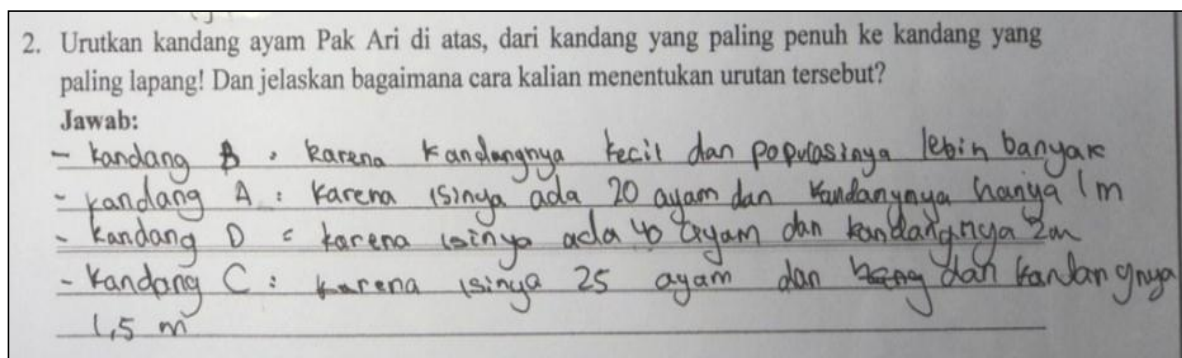 2. Urutkan kandang ayam Pak Ari di atas, dari kandang yang paling penuh ke kandang yang
paling lapang! Dan jelaskan bagaimana cara kalian menentukan urutan tersebut?
Jawab:
- kandang B : karena kandangnya kecil dan populasinya lebih banyak
- kandang A : karena isinya ada 20 ayam dan kandangnya hanya 1 m
- kandang D : karena isinya ada 40 ayam dan kandangnya 2m
- kandang C : karena isinya 25 ayam dan dan kandangnya
1,5 m